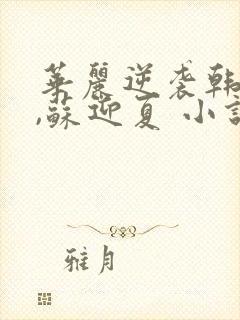 華麗逆袭韩
,蘇迎夏 小說
雅月